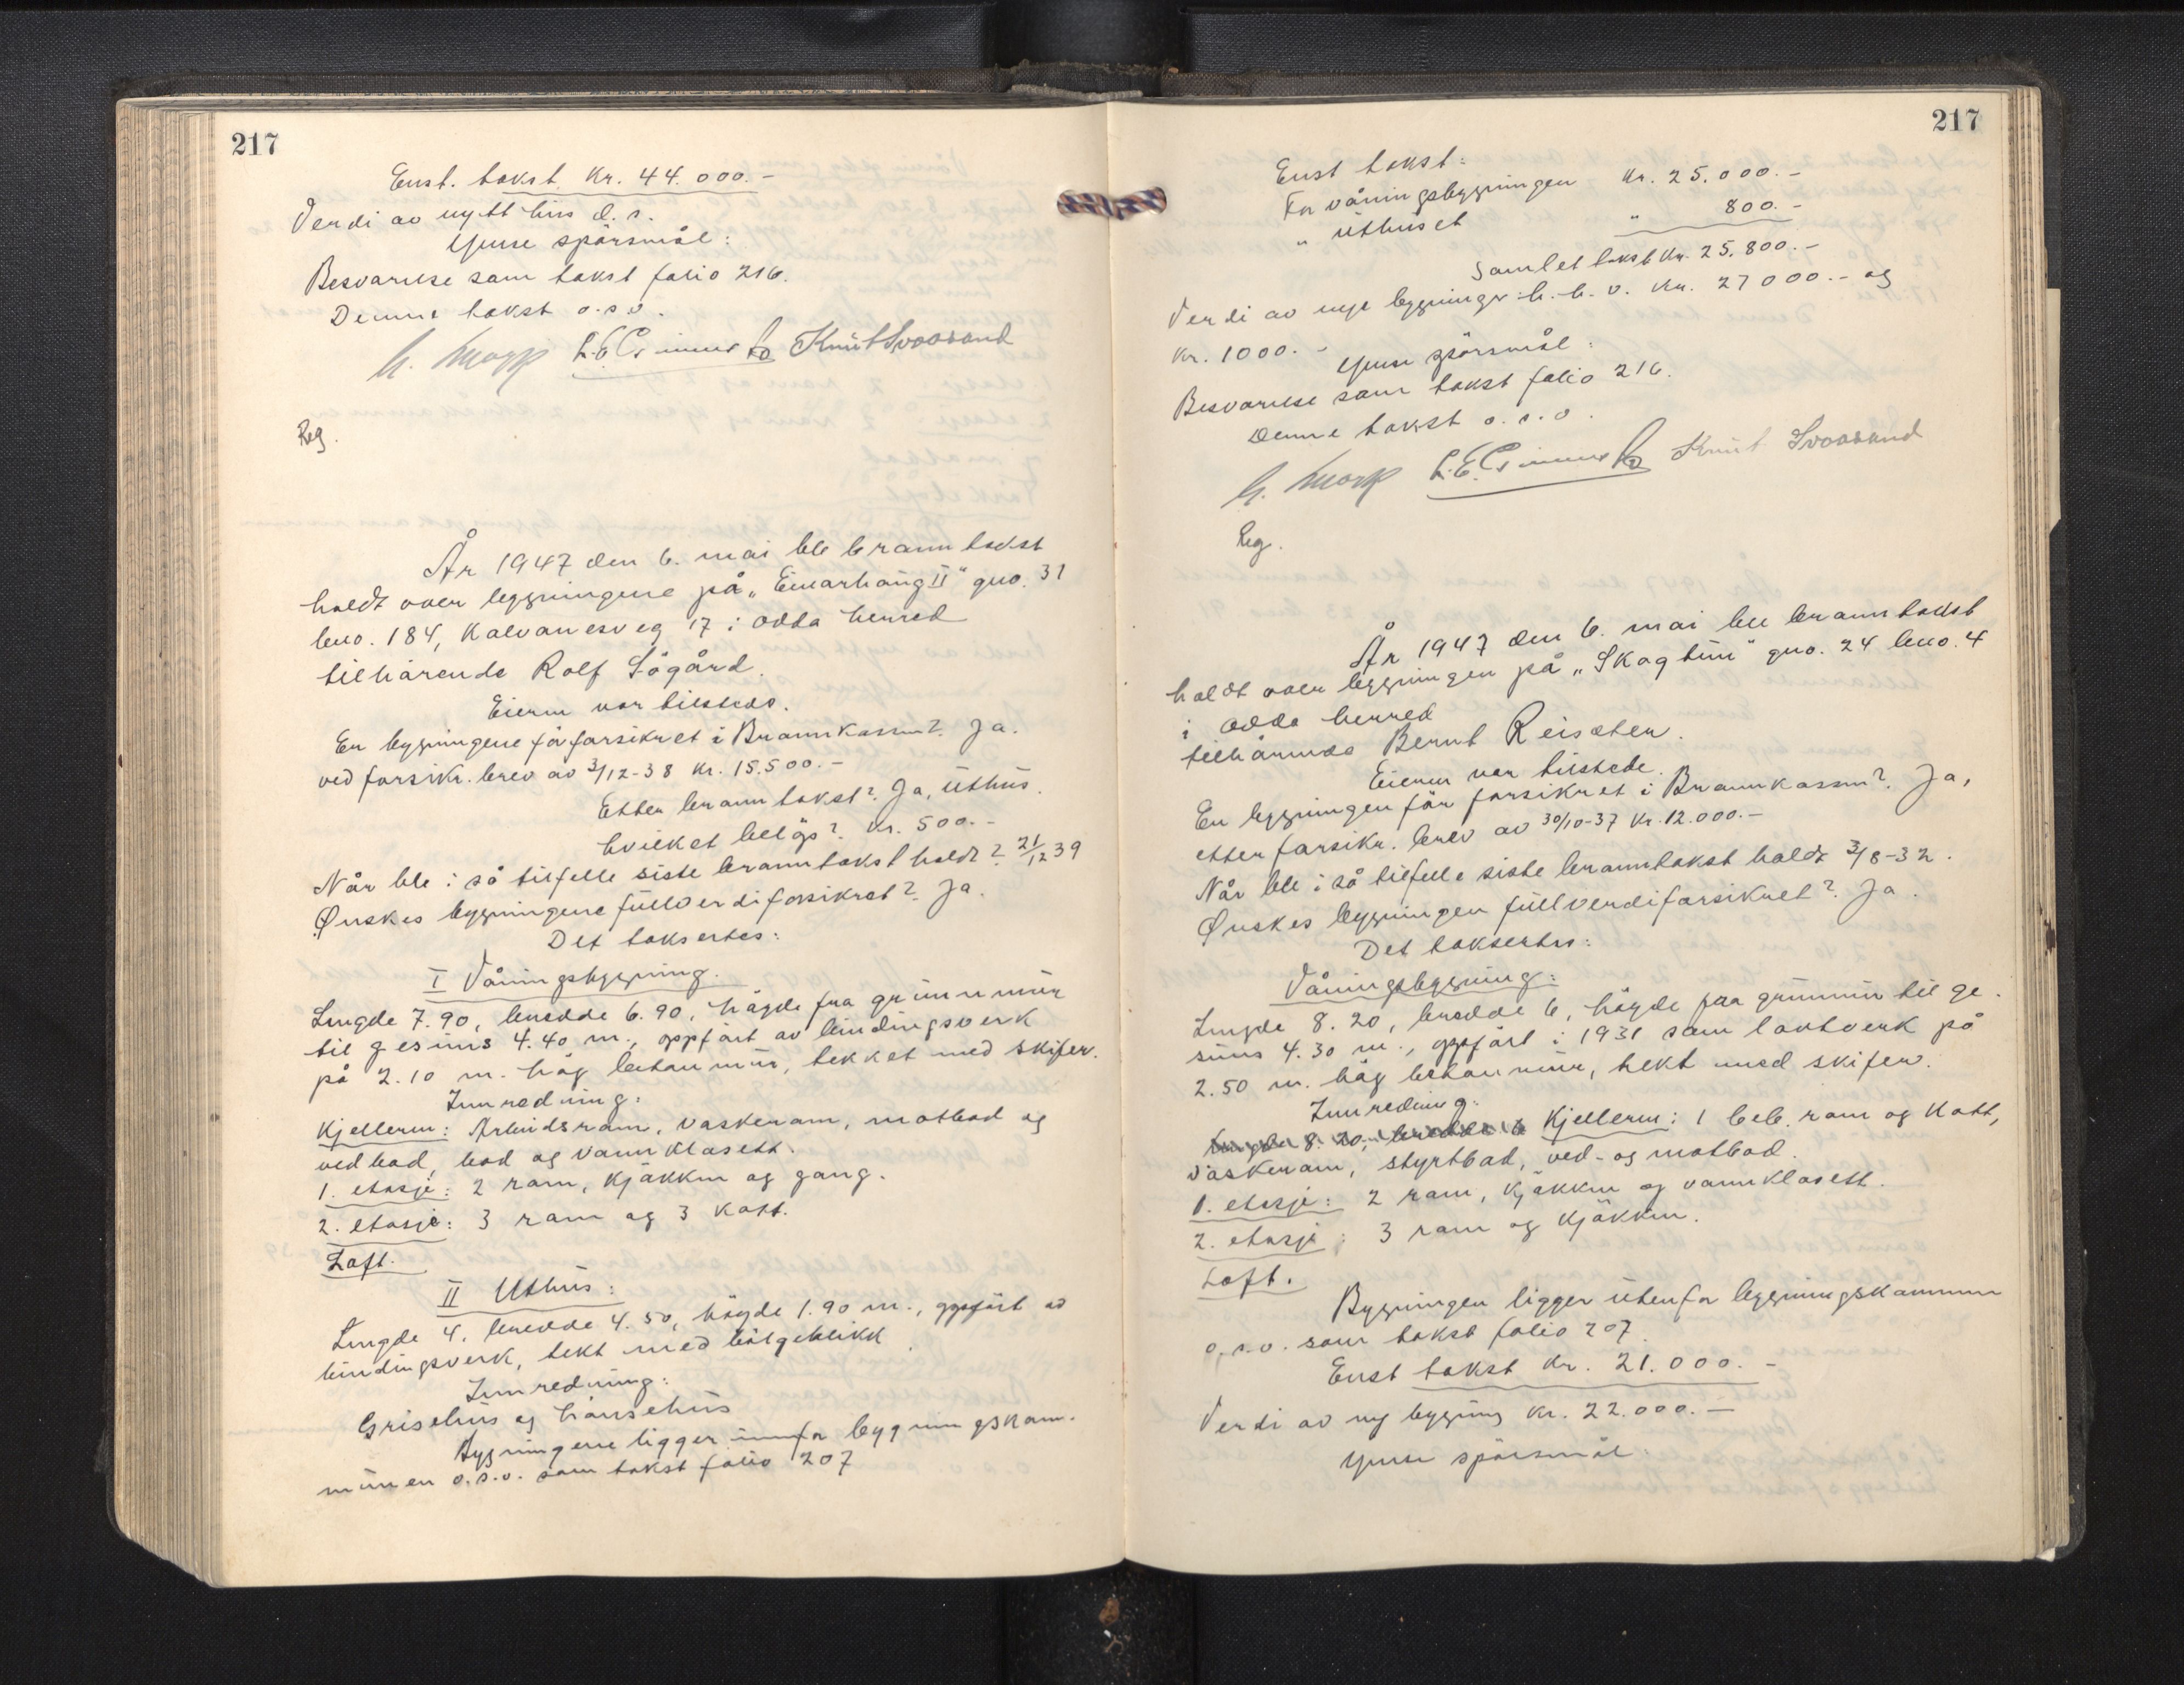 217
Enst. takst kr. 44.000.-
Verdi av nytt hus d.s.
Ymse spörsmål:
Besvarelse som takst folio 216.
Denne takst o.s.v.
Knut Svoasand
Reg.
År 1947 den 6. mai ble branntakst
holdt over bygningene på „Einarhaug II" gno. 31
bno. 184, Kalvanesveg 17 i Odda herred
tilhörende Rolf Sögård.
Eieren var tilstede.
Er bygningene för forsikret i Brannkassen? Ja.
ved forsikr. brev av 3/12-38 kr. 15.500.-
Etter branntakst? Ja, uthus.
hvilket belöp? kr. 500.-
Når ble i så tilfelle siste branntakst holdt? 21/12 39
Ønskes bygningene fullverdiforsikret? Ja.
Det taksertes:
I Våningsbygning.
Lengde 7.90, bredde 6.90, högde fra grunnmur
til gesims 4.40 m., oppfört av bindingsverk
på 2.10 m. hög betonmur, tekket med skifer.
Innredning:
Kjelleren: Arbeidsrom, vaskerom, matbod og
vedbod, bod og vannklosett.
1. etasje: 2 rom, kjökken og gang.
2. etasje: 3 rom og 3 kott.
Loft.
II Uthus:
Lengde 4, bredde 4.50, högde 1.90 m., oppfört av
bindingsverk, tekt med bölgeblikk.
Innredning:
Grisehus og hönsehus
Bygningene ligger innfor bygningskom-
munen o.s.v. som takst folio 207
217
Enst takst:
For våningsbygningen kr. 25.000.-
" uthuset " 800.-
Samlet takst kr. 25.800.-
Verdi av nye bygninger h.h.v. kr. 27000.- og
kr. 1000.-
Ymse spörsmål:
Besvarelse som takst folio 216.
Denne takst o.s.v.
Knut Svoasand
Reg.
År 1947 den 6. mai ble branntakst
holdt over bygningen på „Skogtun" gno. 24 bno. 4
i Odda herred
tilhörende Bernt Reisæter.
Eieren var tilstede.
Er bygningen för forsikret i Brannkassen? Ja,
etter forsikr. brev av 30/10-37 kr. 12.000.-
Når ble i så tilfelle siste branntakst holdt 3/8-32.
Ønskes bygningen fullverdiforsikret? Ja.
Det taksertes:
Våningsbygning:
Lengde 8.20, bredde 6, högde fra grunnmur til ge-
sims 4.30 m., oppfört i 1931 som laftverk på
2.50 m. hög betonmur, tekt med skifer.
Innredning:
Lengde 8.20, bredde 6 Kjelleren: 1 beb. rom og kott,
vaskerom, styrtbad, ved- og matbod.
1. etasje: 2 rom, kjökken og vannklosett.
2. etasje: 3 rom og kjökken.
Loft.
Bygningen ligger utenfor bygningskommunen
o.s.v. som takst folio 207.
Enst takst kr. 21.000.-
Verdi av ny bygning kr. 22.000.-
Ymse spörsmål: